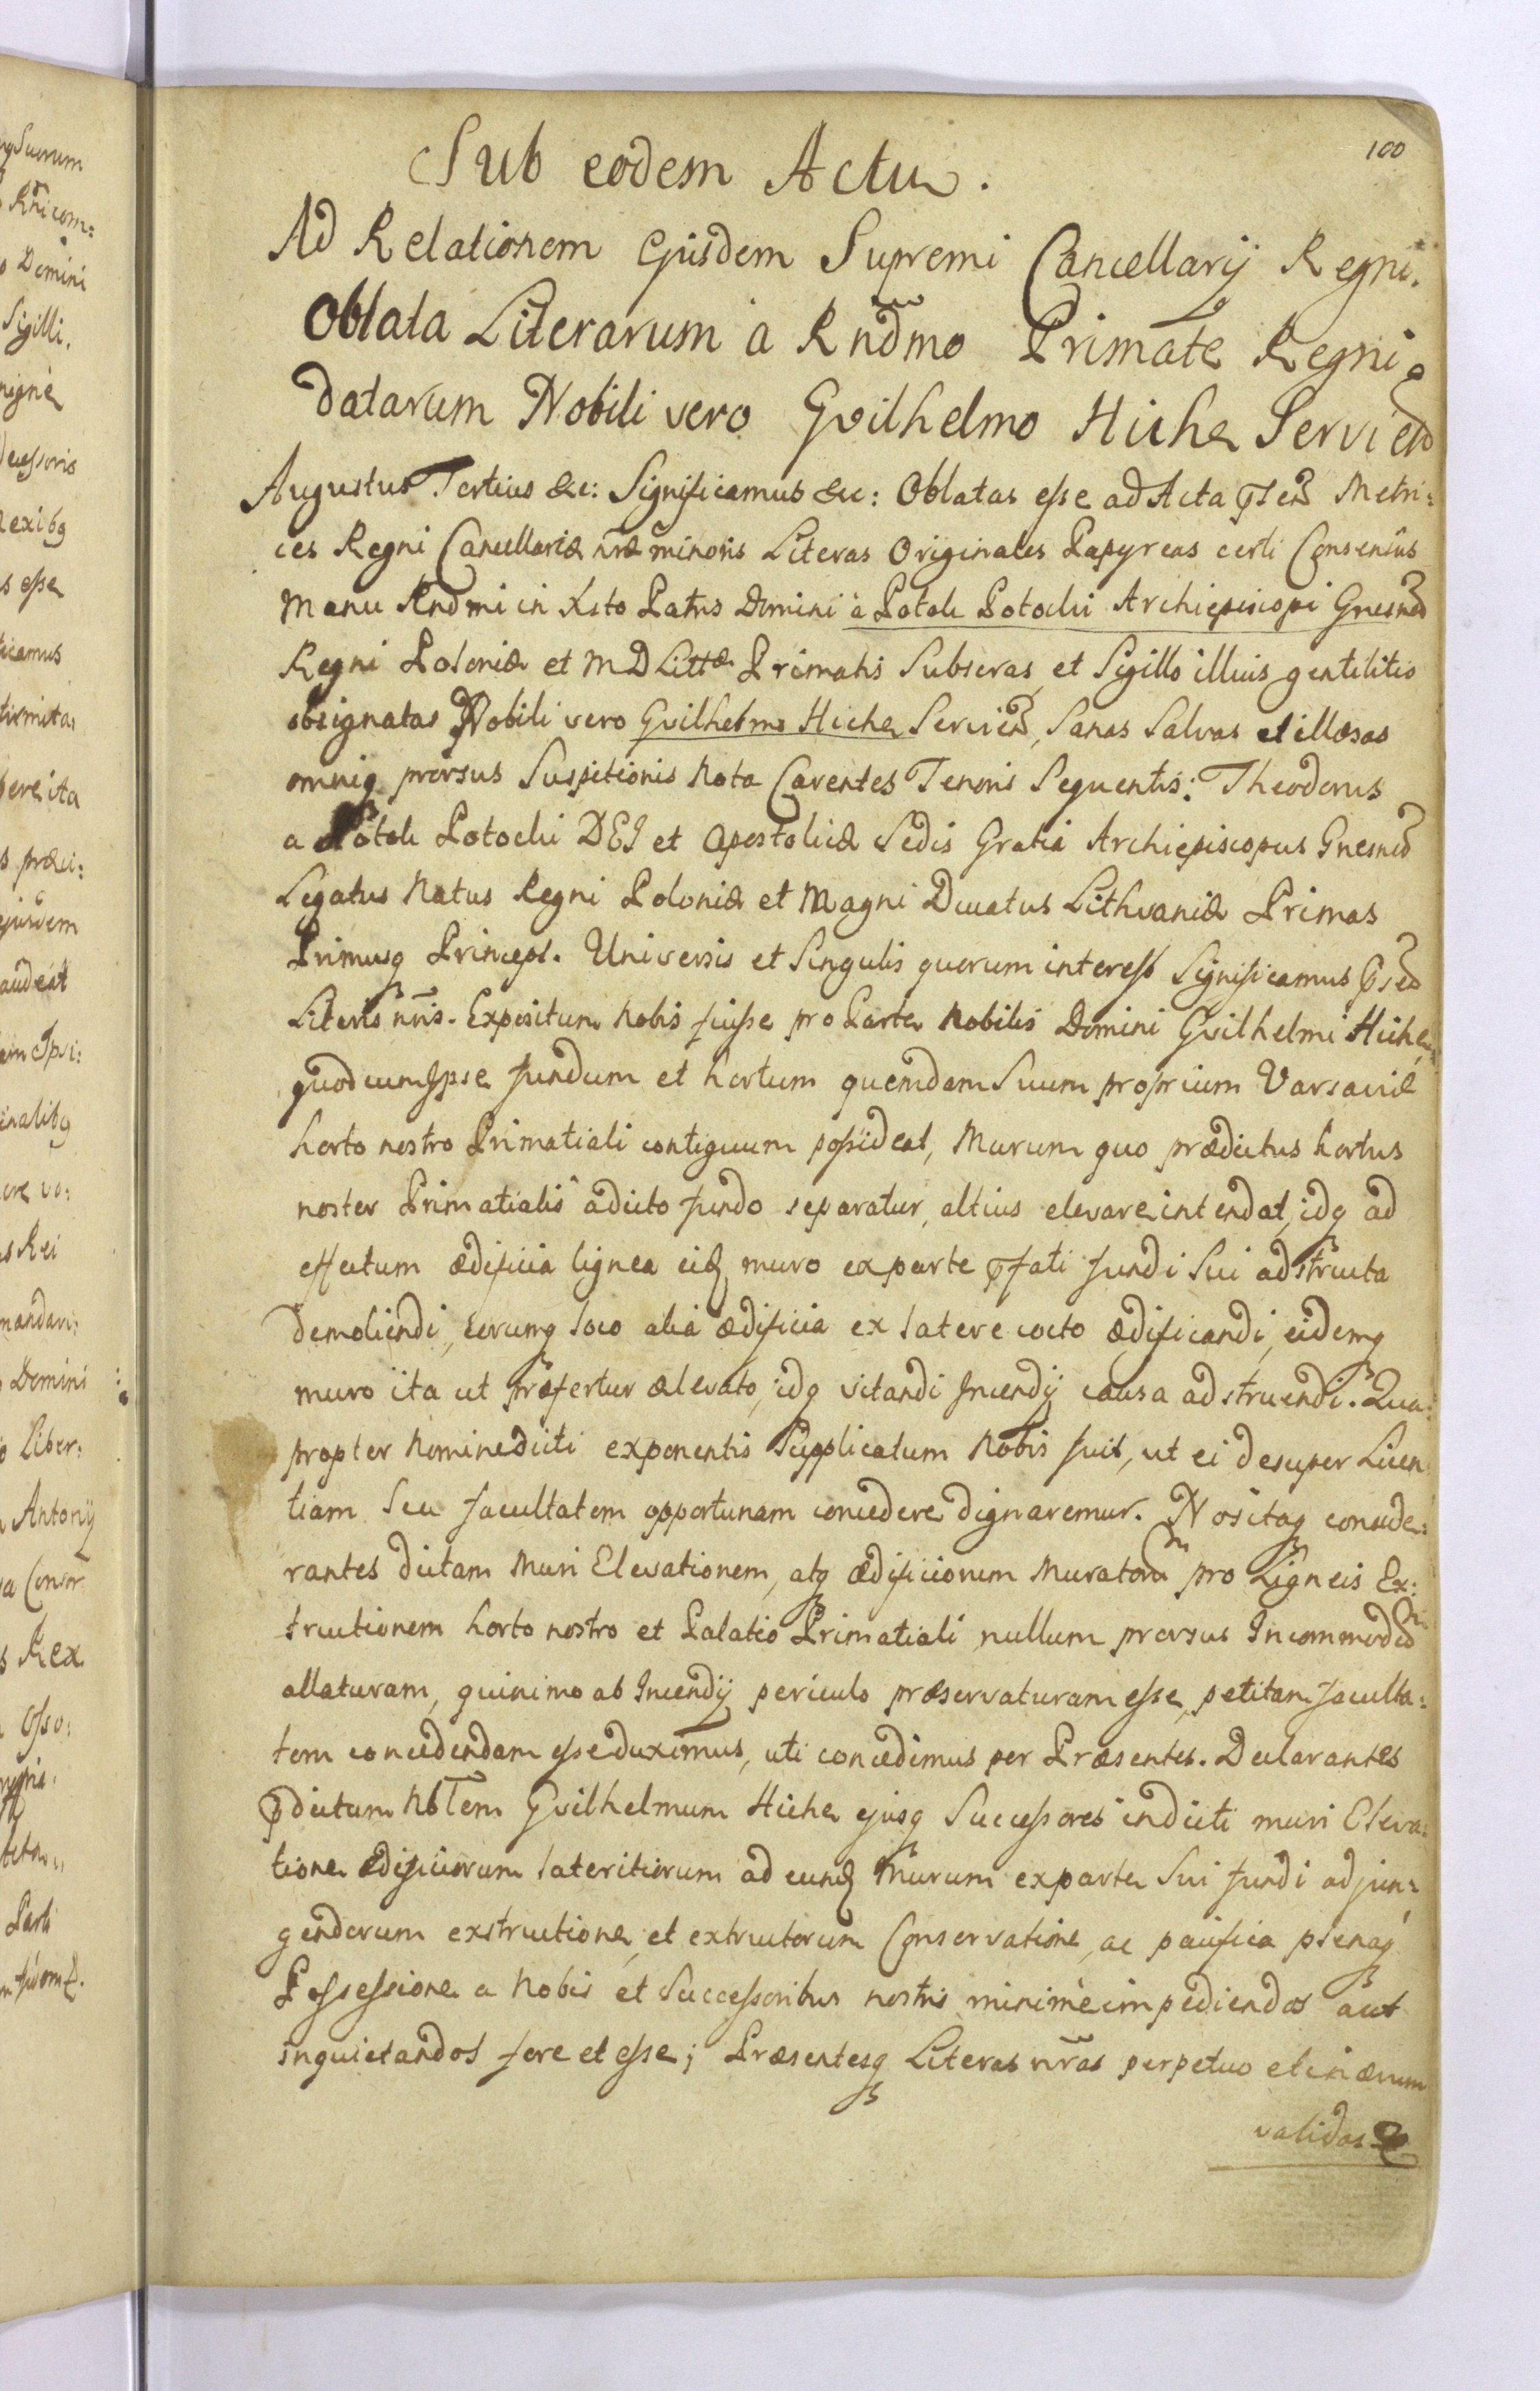 100
Sub eodem Actu.
Ad Relationem Ejusdem Supremi Cancellarij Regni.
Oblata Literarum a Rndmo Primate Regni
datarum Nobili vero Gvilhelmo Hiche Servien
Augustus Tertius &c: Significamus &c: Oblatas esse ad Acta psen Metri:
ces Regni Cancellariæ nræ minoris Literas Originales Papyreas certi Consensus
Manu Rndmi in Xsto Patris Domini a Potok Potocki Archiepiscopi Gnesnen
Regni Poloniæ et M D Littæ Primatis Subscras, et Sigillo illius gentilitio
obsignatas Nobili vero Gvilhelmo Hiche Servien, Sanas Salvas et illæsas
omniq prorsus Suspitionis Nota Carentes Tenoris Sequentis: Theodorus
a Potok Potocki DEI et Apostolicæ Sedis Gratia Archiepiscopus Gnesnen
Legatus Natus Regni Poloniæ et Magni Ducatus Lithvaniæ Primas
Primusq Princeps. Universis et Singulis quorum interest Significamus psen
Literis nris. Expositum Nobis fuisse pro Parte Nobilis Domini Gvilhelmi Hiche,
quod cum Ipse fundum et hortum quemdam Suum proprium Varsaviæ
horto nostro Primatiali contiguum possideat, Murum quo prædictus hortus
noster Primatialis a dicto fundo separatur, altius elevare intendat, idq ad
effectum ædificia lignea eid muro ex parte pfati fundi Sui adstructa
demoliendi, eorumq loco alia ædificia ex latere cocto ædificandi, eidemq
muro ita ut præfertur ælevato, idq vitandi Incendij causa adstruendi. Qua:
propter Nomine dicti exponentis Supplicatum Nobis fuit, ut ei desuper Licen
tiam Seu facultatem opportunam concedere dignaremur. Nos itaq conside:
rantes dictam Muri Elevationem, atq ædificiorum Murator pro Ligneis Ex:
tructionem horto nostro et Palatio Primatiali nullum prorsus Incommod
allaturam, quinimo ab Incendij periculo præservaturam esse, petitam faculta:
tem concedendam esse duximus, uti concedimus per Præsentes. Declarantes
pdictum Nblem Gvilhelmum Hiche ejusq Successores in dicti muri Eleva:
tione ædificiorum lateritiorum ad eund Murum ex parte Sui fundi adjun:
gendorum exstructione, et extructorum Conservatione, ac pacifica plenaq
Possessione a Nobis et Successoribus nostris minimè impediendos aut
inquietandos fore et esse; Præsentesq Literas nras perpetuo et in ævum
validas